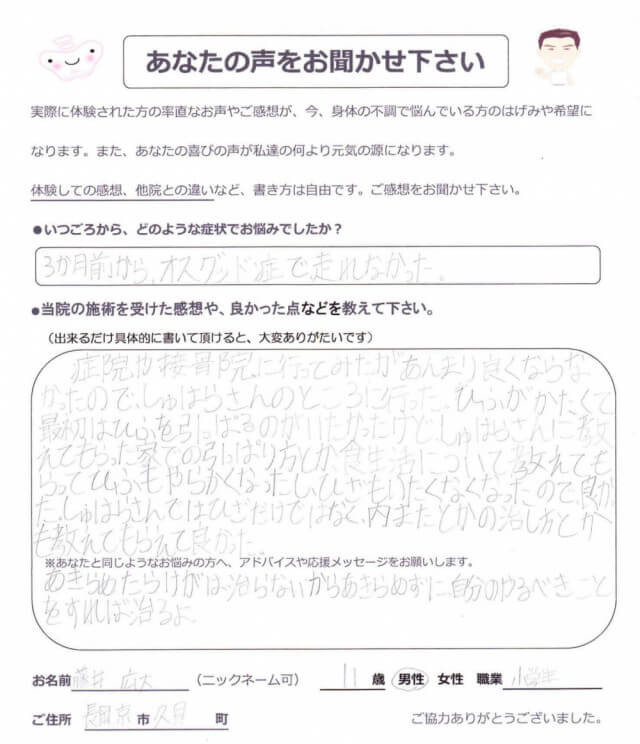 あなたの声をお聞かせ下さい
実際に体験された方の率直なお声やご感想が、今、身体の不調で悩んでいる方のはげみや希望に
なります。また、あなたの喜びの声が私達の何より元気の源になります。
体験しての感想、他院との違いなど、書き方は自由です。ご感想をお聞かせ下さい。
●いつごろから、どのような症状でお悩みでしたか？
3か月前から、オスグッド症で走れなかった。
●当院の施術を受けた感想や、良かった点などを教えて下さい。
（出来るだけ具体的に書いて頂けると、大変ありがたいです）
症院や接骨院に行ってみたがあんまり良くならな
かったので、しゅはらさんのところに行った。ひふがかたくて
最初はひふを引っぱるのがいたかったけどしゅはらさんに教
えてもらった家での引っぱり方とか食生活について教えても
らってひふもやらかくなったし、ひざもいたくなくなったので良かっ
た。しゅはらさんではひざだけではなく、内またとかの治し方とか
も教えてもらえて良かった。
※あなたと同じようなお悩みの方へ、アドバイスや応援メッセージをお願いします。
あきらめたらけがは治らないからあきらめずに自分のやるべきこと
をすれば治るよ
お名前 藤井 広大 （ニックネーム可） 11 歳 男性 女性 職業 小学生
ご住所 長岡京 市 久貝 町 ご協力ありがとうございました。